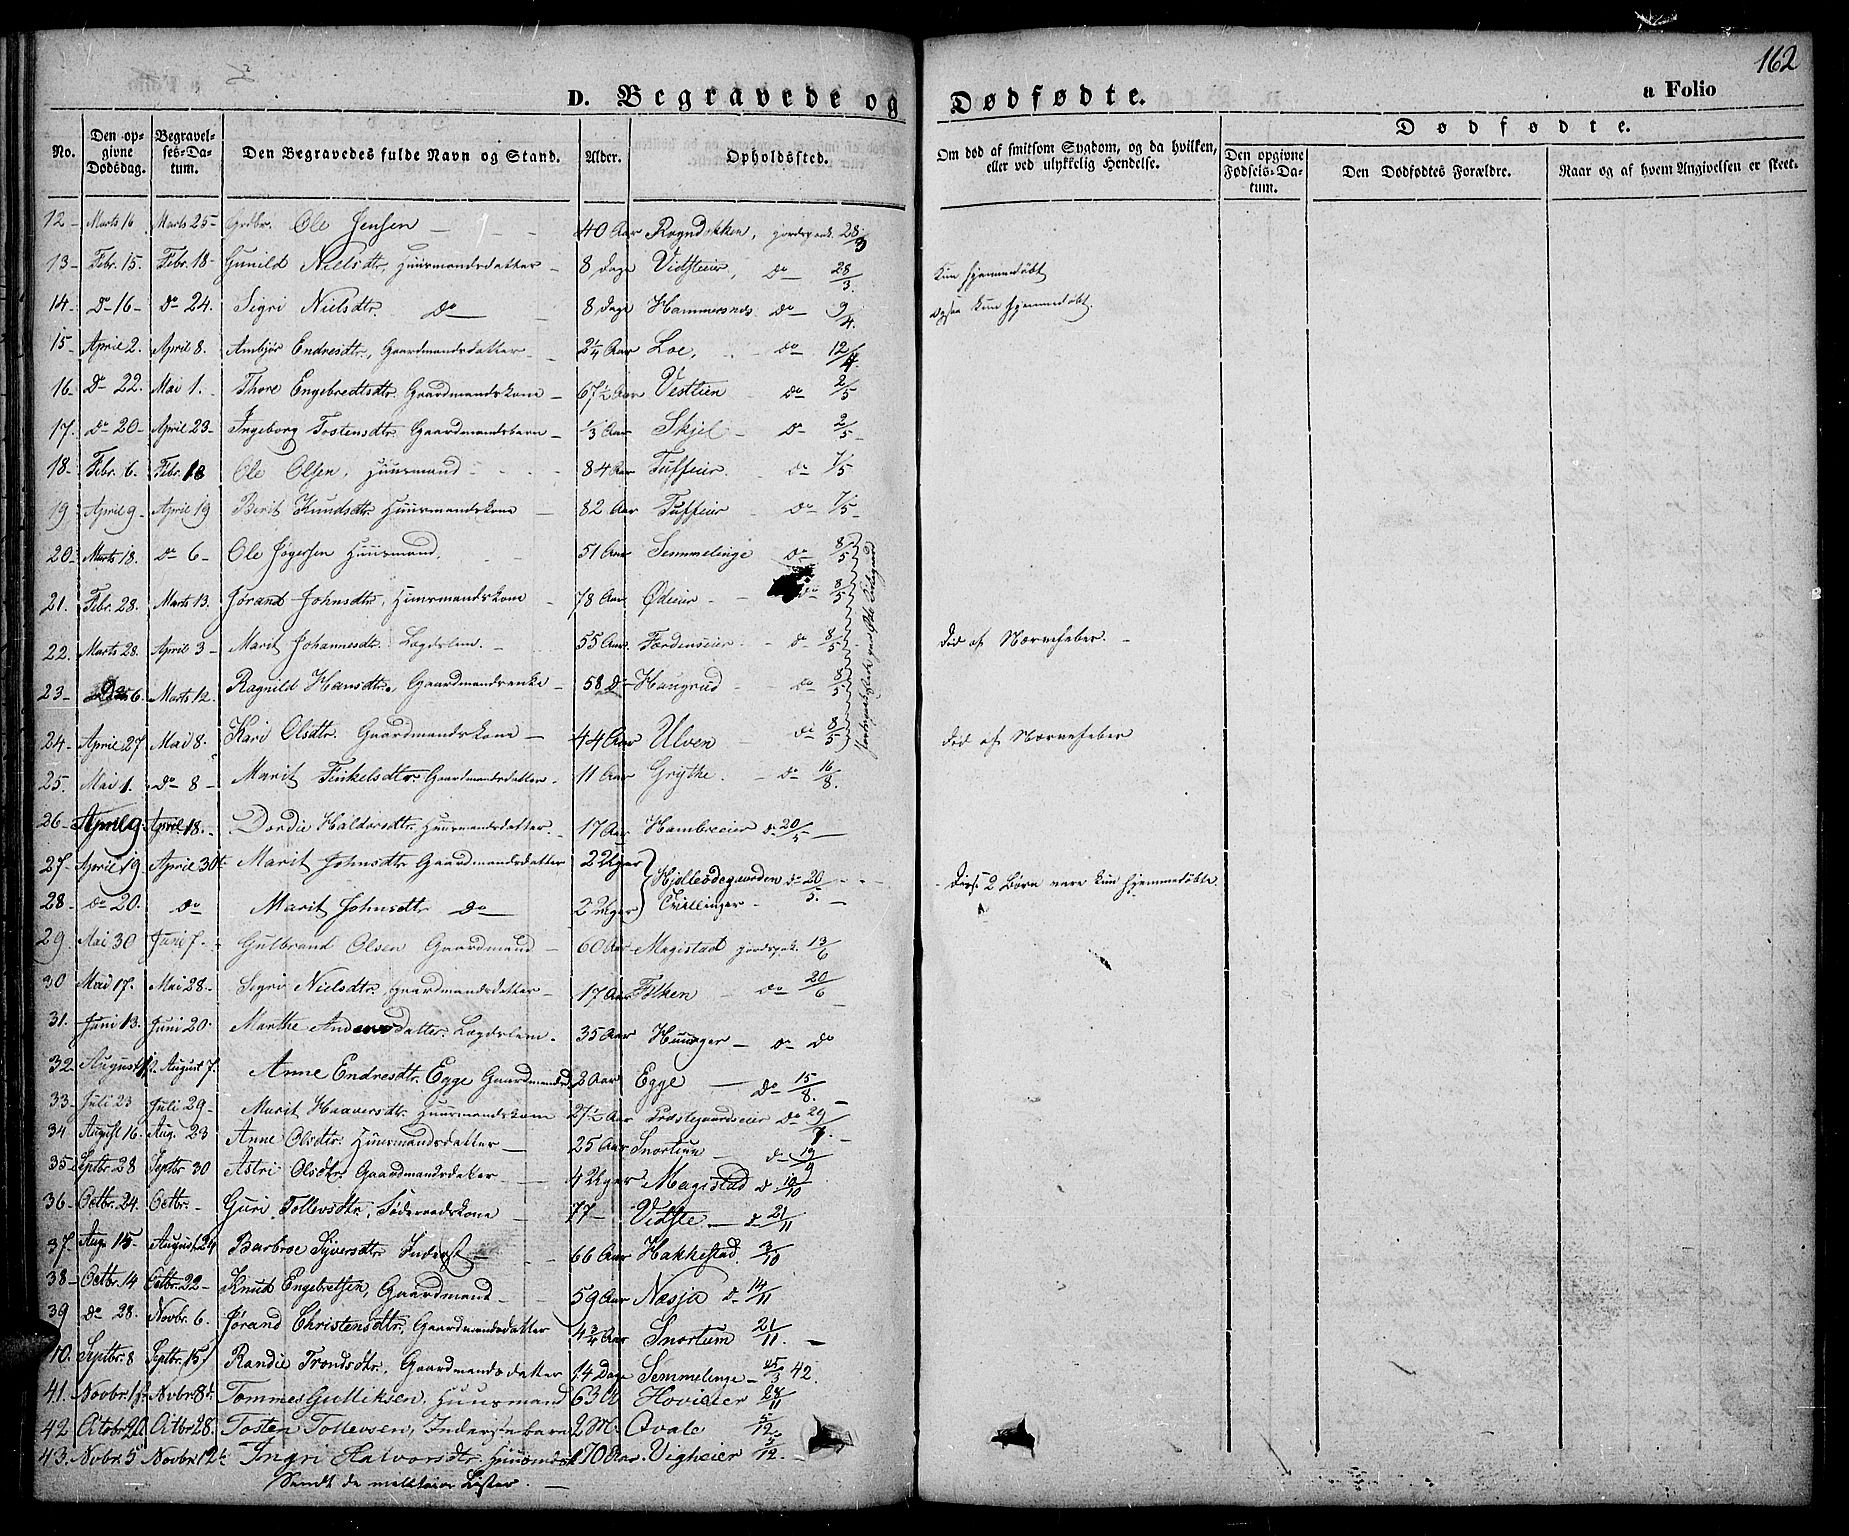 162
D. Begravede og Dødfødte. a Folio
No. Den opgivne Dødsdag. Begravelses-Datum. Den Begravedes fulde Navn og Stand. Alder. Opholdsted. Om død af smitsom Sygdom, og da hvilken, eller ved ulykkelig Hendelse. Dødfødte.
Den opgivne Fødsels-Datum. Den Dødfødtes Forældre. Naar og af hvem Angivelsen er skeet.
12 Marts 16 Marts 25 Grdbr. Ole Jensen 40 Aar Rogndokken, jordspaak. 28/3
13 Febr. 15. Febr. 18 Gunild Nielsdtr. Huusmandsdatter 8 Dage Vidsteier, Do 28/3. Kun hjemmedøbt
14. Do 16 Do 24. Sigri Nielsdtr. Do 8 Dage Hammersnes Do 9/4. Ogsaa kun hjemmedøbt.
15 April 2. April 8. Ambjør Endresdtr, Gaardmandsdatter 2¼ Aar Loe, Do 12/4.
16. Do 22. Mai 1. Thore Engebredtsdtr. Gaardmandskone 67½ Aar Vestlien Do 2/5
17. Do 20 April 23 Ingeborg Tostensdtr. Gaardmandsbarn ⅓ Aar Skjel Do 2/5
18. Febr. 6. Febr. 18 Ole Olsen, Huusmand 84 Aar Tuffeier Do 7/5
19 April 9 April 19 Berit Knudsdtr. Huusmandskone 82 Aar Tuffeier Do 7/5
20. Marts 18. Do 6 Ole Jøgersen Huusmand. 51 Aar Semmelinge Do 8/5
21. Febr. 28. Marts 13. Jørand Johnsdtr, Huusmandskone 78 Aar Ødeier Do 8/5
22. Marts 28. April 3 Marit Johannesdtr. Lægdslem. 55 Aar Fordenseier Do 8/5 Død af Nærvefeber.
23 6. Marts 12. Ragnild Hansdtr. Gaardmandsenke 58 Do Haugrud Do 8/5
24. April 27 Mai 8. Kari Olsdtr. Gaardmandskone 44 Aar Ulven Do 8/5 Død af Nærvefeber
25. Mai 1. Do 8 Marit Tinkelsdtr. Gaardmandsdatter. 11 Aar Grythe. Do 16/8.
26 April 9. April 18. Dordie Haldorsdtr. Huusmandsdatter. 17 Aar Hambreeier Do 20/5
27. April 19 April 30 Marit Johnsdtr. Gaardmandsdatter 2 Uger Hjelleødegaarden Do 20/5. Disse 2 Børn vare kun hjemmedøbte.
28. Do 20. Do Marit Johnsdtr Do 2 Uger Tvillinger
29. Mai 30 Juni 7. Gulbrand Olsen Gaardmand 60 Aar Magistad jordspaak. 13/6
30 Mai 17. Mai 28. Sigri Nielsdtr. Gaardmandsdatter 17 Aar Folken Do 20/6
31. Juni 13. Juni 20. Marthe Andersdatter. Lægdslem. 35 Aar Huuger Do Do
32 August August 7. Anne Endresdtr. Egge Gaardmandsd 2 Aar Egge Do 15/8.
33 Juli 23 Juli 29 Marit Haaversdtr. Huusmandskone 27½ Aar Prøstegaardseier Do 29/
34 August 16. Aug. 23 Anne Olsdtr. Huusmandsdatter 25 Aar Snortum
35 Septbr. 28 Septbr 30 Astri Olsdtr. Gaardmandsdatter 4 Uger Magistad D. 10/10
36. Octbr. 24. Octbr. Guri Tollevsdtr, Føderaadskone 77 Vidste D. 21/11
37. Aug. 15. August 24 Barbroe Syversdtr. Inderst 66 Aar Hakkestad. 3/10
38 Octbr. 14 Octbr. 22 Knud Engebretsen, Gaardmand 59 Aar Næsja D. 14/11
39 Do 28. Novbr. 6. Jørand Christensdtr, Gaardmandsdatter 4¾ Aar Snortum 21/11.
40. Septbr. 8 Septbr. 15 Randie Trondsdtr, Gaardmandsdatter 14 Dage Semmelinge 25/3 42.
41. Novbr. 1 Novbr. 8 Tommes Gulliksen, Huusmand 63 Hovieier 28/11
42 Octobr 20 Octbr 28. Tosten Tollevsen, Inderstebarn 2 M. Qvale 5/12
43. Novbr. 5 Novbr. 12 Ingri Halvorsdtr. Huusmdsk 70 Aar. Vigheier 5/12.
Sendt de militaire Lister.